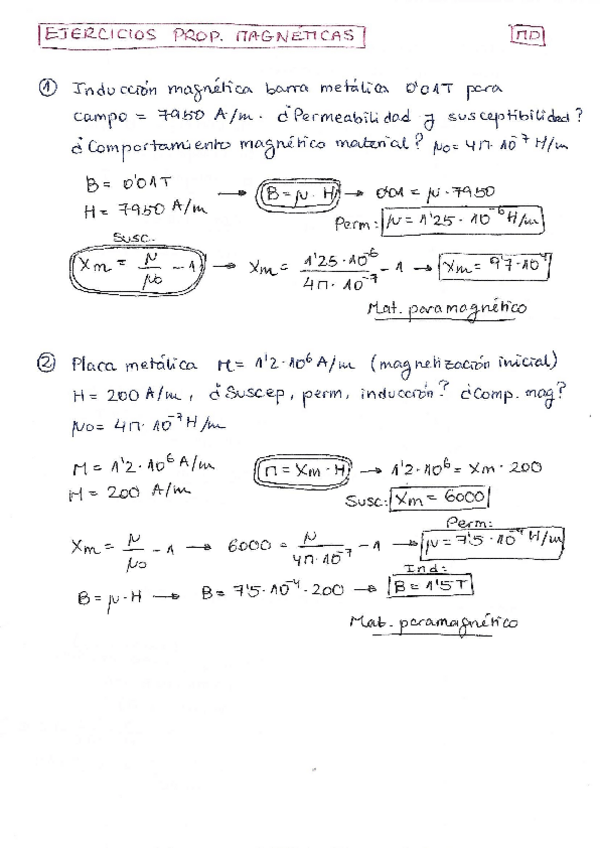 EJERCICIOS PROP. MAGNÉTICAS MD
① Inducción magnética barra metálica 0'01T para
campo = 7950 A/m. ¿Permeabilidad y susceptibilidad?
¿Comportamiento magnético material? μ0=4π·10⁻⁷ H/m
B = 0'01T
H = 7950 A/m → B=μ·H → 0'01 = μ·7950
Perm: μ = 1'25·10⁻⁶ H/m
Susc.
Xm = μ/μ0 - 1 → Xm = 1'25·10⁻⁶/4π·10⁻⁷ - 1 → Xm = 9'7·10⁴
Mat. paramagnético
② Placa metálica M = 1'2·10⁶ A/m (magnetización inicial)
H = 200 A/m, ¿Suscep, perm, inducción? ¿Comp. mag?
μ0 = 4π·10⁻⁷ H/m
M = 1'2·10⁶ A/m
H = 200 A/m M = Xm·H → 1'2·10⁶ = Xm·200
Susc: Xm = 6000
Perm:
Xm = μ/μ0 - 1 → 6000 = μ/4π·10⁻⁷ - 1 → μ = 7'5·10⁻⁴ H/m
Ind:
B = μ·H → B = 7'5·10⁻⁴·200 → B = 1'5 T
Mat. paramagnético